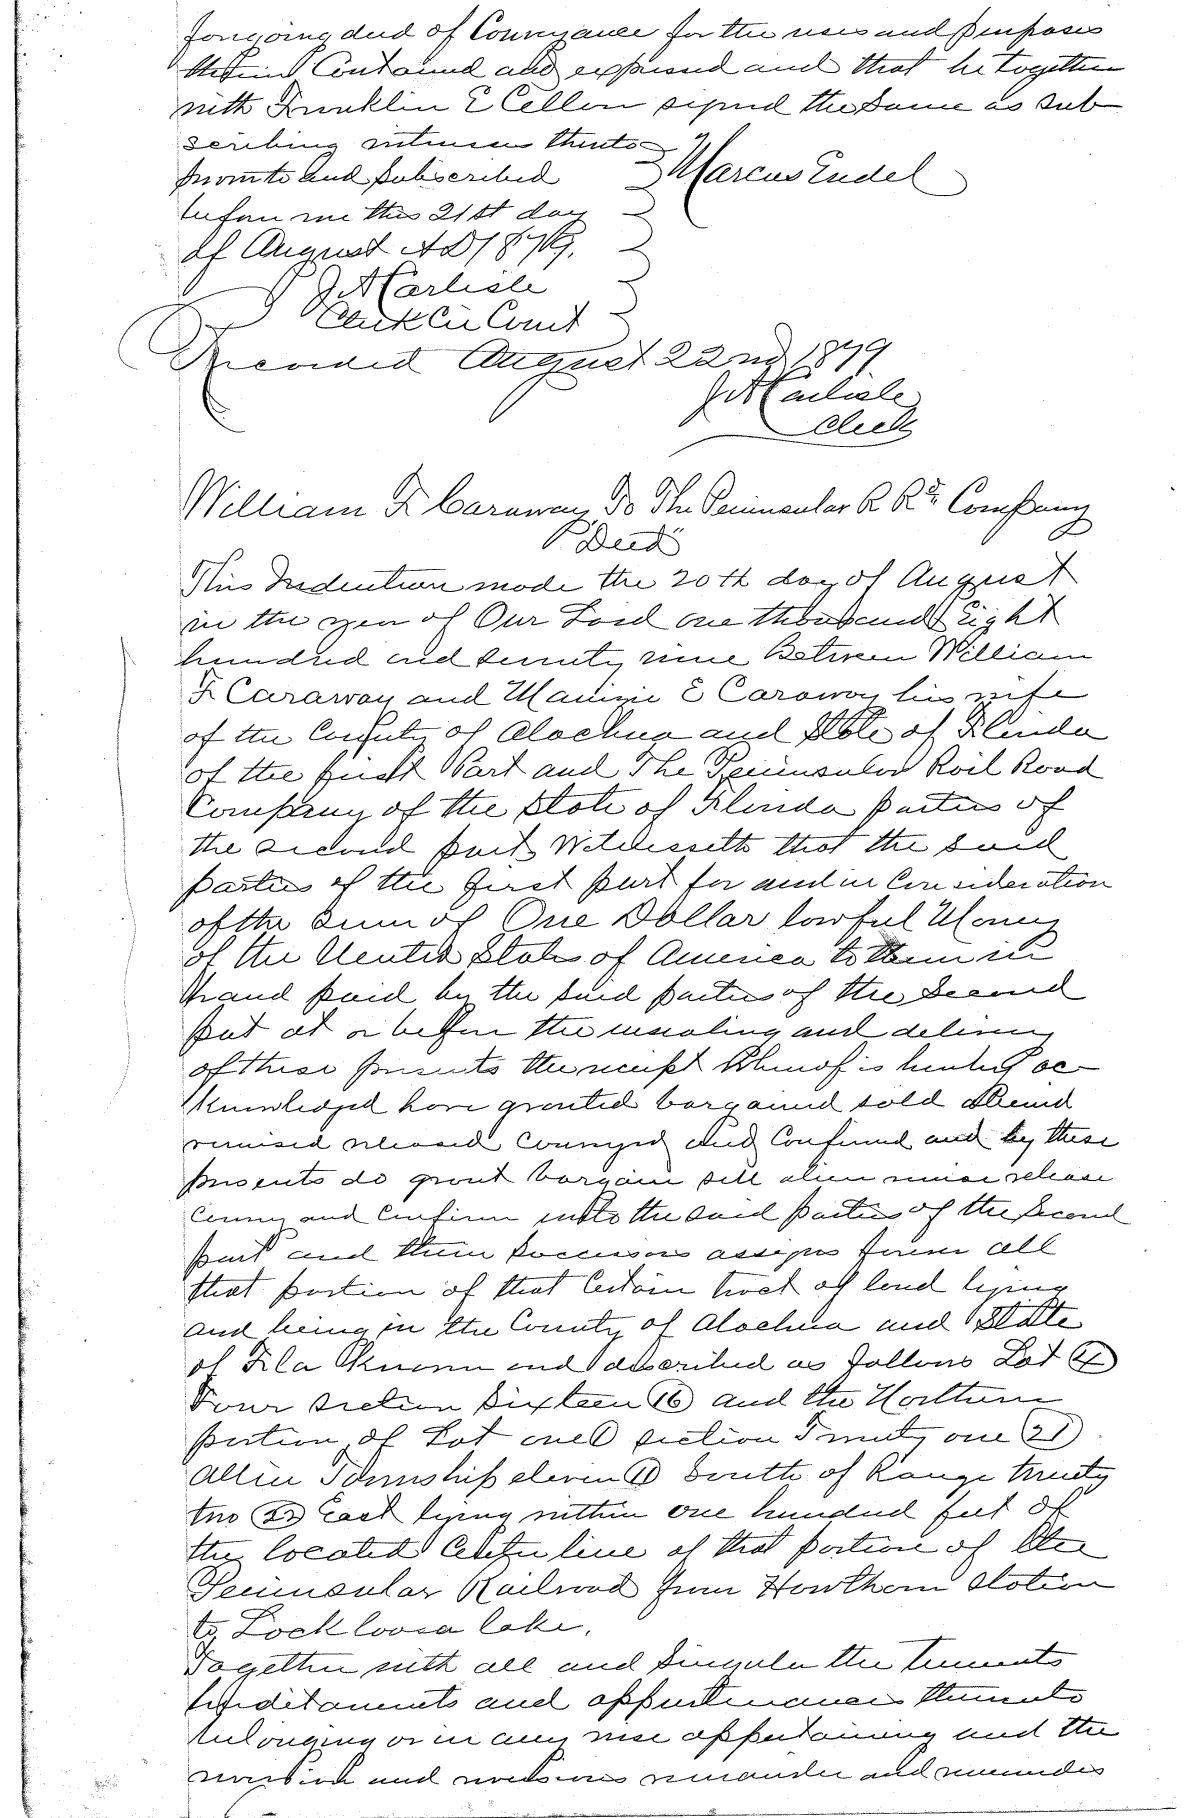 foregoing deed of Conveyance for the uses and purposes
therein Contained and expressed and that he together
with Franklin E Cellon signed the same as sub
scribing witnesses thereto
Sworn to and Subscribed Marcus Endel
before me this 21st day
of August AD 1879.
J A Carlisle
Clerk Cir Court
Recorded August 22nd 1879
J A Carlisle
Clerk
William F Caraway To The Peninsular R Rd Company
"Deed"
This Indenture made the 20th day of August
in the year of Our Lord one thousand Eight
hundred and seventy nine Between William
F Caraway and E Caraway his wife
of the County of Alachua and State of Florida
of the first Part and The Peninsular Rail Road
Company of the State of Florida parties of
the second part Witnesseth that the said
parties of the first part for and in Consideration
of the sum of One Dollar lawful Money
of the United States of America to them in
hand paid by the said parties of the Second
part at or before the ensealing and delivery
of these presents the receipt whereof is hereby ac
knowledged have granted bargained sold aliened
remised released Conveyed and Confirmed and by these
presents do grant bargain sell alien remise release
Convey and Confirm unto the said parties of the Second
part and their Successors assigns forever all
that portion of that Certain tract of land lying
and being in the County of Alachua and State
of Fla Known and described as follows Lot (4)
Four section Sixteen (16) and the Northern
portion of Lot one (1) section Twenty one (21)
all in Township eleven (11) South of Range twenty
two (22) East lying within one hundred feet of
the located Center line of that portion of the
Peninsular Railroad from Hawthorn Station
to Lockloosa lake.
Together with all and Singular the tenements
hereditaments and appurtenances thereunto
belonging or in any wise appertaining and the
reversion and reversions remainder and remainders